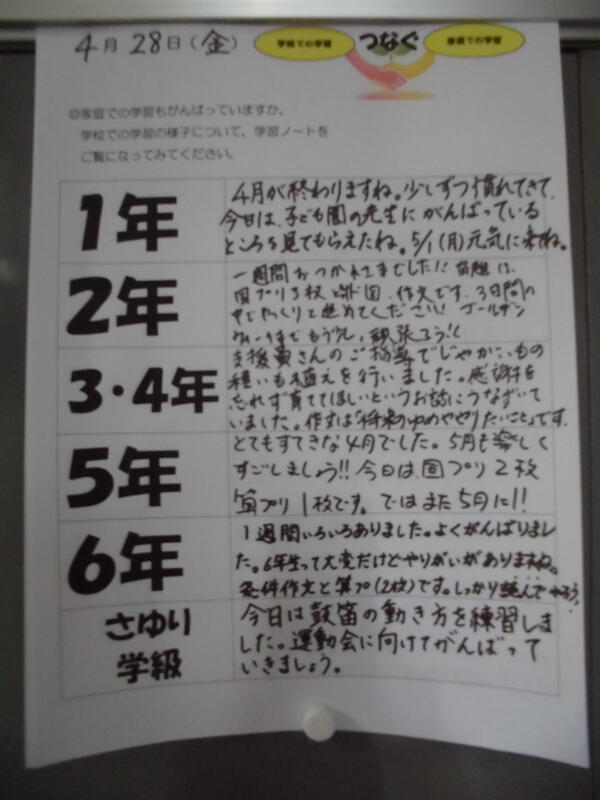 4月28日(金)
学校での学習 つなぐ 家庭での学習
◎家庭での学習もがんばっていますか。
学校での学習の様子について、学習ノートを
ご覧になってみてください。
1年
4月が終わりますね。少しずつ慣れてきて、
今日は、子ども園の先生にがんばっている
ところを見てもらえたね。5/1(月)元気に来てね。
2年
一週間おつかれさまでした!! 宿題は、
国プリ3枚と 作文です。3日間の
中でゆっくりと進めてください! ゴールデン
ウィークまでもう少し、頑張ろう!
3・4年
支援員さんのご指導でじゃがいもの
種いも植えを行いました。感謝を
忘れず育ててほしいというお話にうなずいて
いました。作文は「将来のゆめややりたいこと」です。
5年
とてもすてきな4月でした。5月も楽しく
すごしましょう!! 今日は、国プリ2枚
算プリ1枚です。ではまた5月に!!
6年
1週間いろいろありました。よくがんばりまし
た。6年生って大変だけどやりがいがありますね。
条件作文と算プ(2枚)です。しっかり読んでやろう。
さゆり
学級
今日は鼓笛の動き方を練習しま
した。運動会に向けてがんばって
いきましょう。